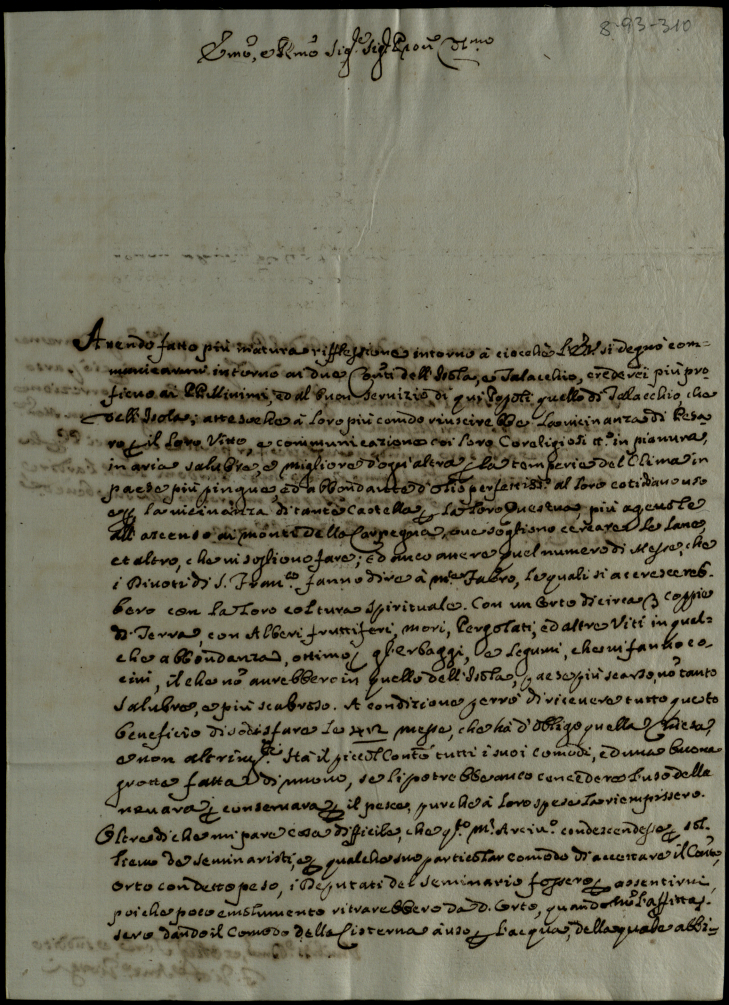 8-93-310
Emo, e Rmo Sigre Sigre Pron Colmo
Avendo fatto più matura rifflessione intorno à ciò che l'E.V. si degnò com-
municarmi intorno ai due Conti dell'Isola, e Talacchio, crederei più pro-
ficuo ai PP. Minimi, ed al buon servizio di qui Popoli quello di Talacchio, che
dell'Isola; attesoche à loro più comodo riuscirebbe la vicinanza di Pesa-
ro p il loro Vino, e communicazione coi loro Coreligiosi in pianura,
in aria salubre, e migliore d'ogn'altra p la temperie del Clima in
paese più pingue, ed abbondante d'oglio perfettisso al loro cotidiano uso
e p la vicinanza di tante Castella p la loro questua, più agevole
all'ascenso ai monti della Carpegna, ove sogliono cercare le lane,
et altro, che vi sogliono fare; ed anco avere quel numero di Messe, che
i Divoti di S. Franco fanno dire à mte Fabro, le quali si accrescereb-
bero con la loro coltura spirituale. Con un Orto di circa 3 coppie
di Terra, con Alberi fruttiferi, mori, Pergolati, ed altre Viti in qual-
che abbondanza, ottimo p gl'erbaggi, e legumi, che vi fanno co-
cini, il che nō avrebbero in quello dell'Isola, paese più scarso, nō tanto
salubre, e più scabroso. A condizione perrò di ricevere tutto questo
beneficio di sodisfare le 412 messe, che hà d'obligo quella Chiesa,
e non altrimte. Stà il piccol Conto tutti i suoi comodi, ed una buona
grotta fatta di nuovo, se li potrebbe anco concedere l'uso della
nevara p conservare p il pesce, purche à loro spese la riempissero.
Oltre di che mi pare cosa difficile, che qto Mr Arcivo condescendesse p sol-
lievo de seminaristi, e p qualche suo particolar comodo di accettare il Conto,
Orto con detto peso, i Deputati del Seminario fossero p assentirvi,
poiche poco emolumento ritrarebbero da d. Orto, quando nō l'affittas-
sero dando il Comodo della Cisterna à uso p l'acqua, della quale abbi-